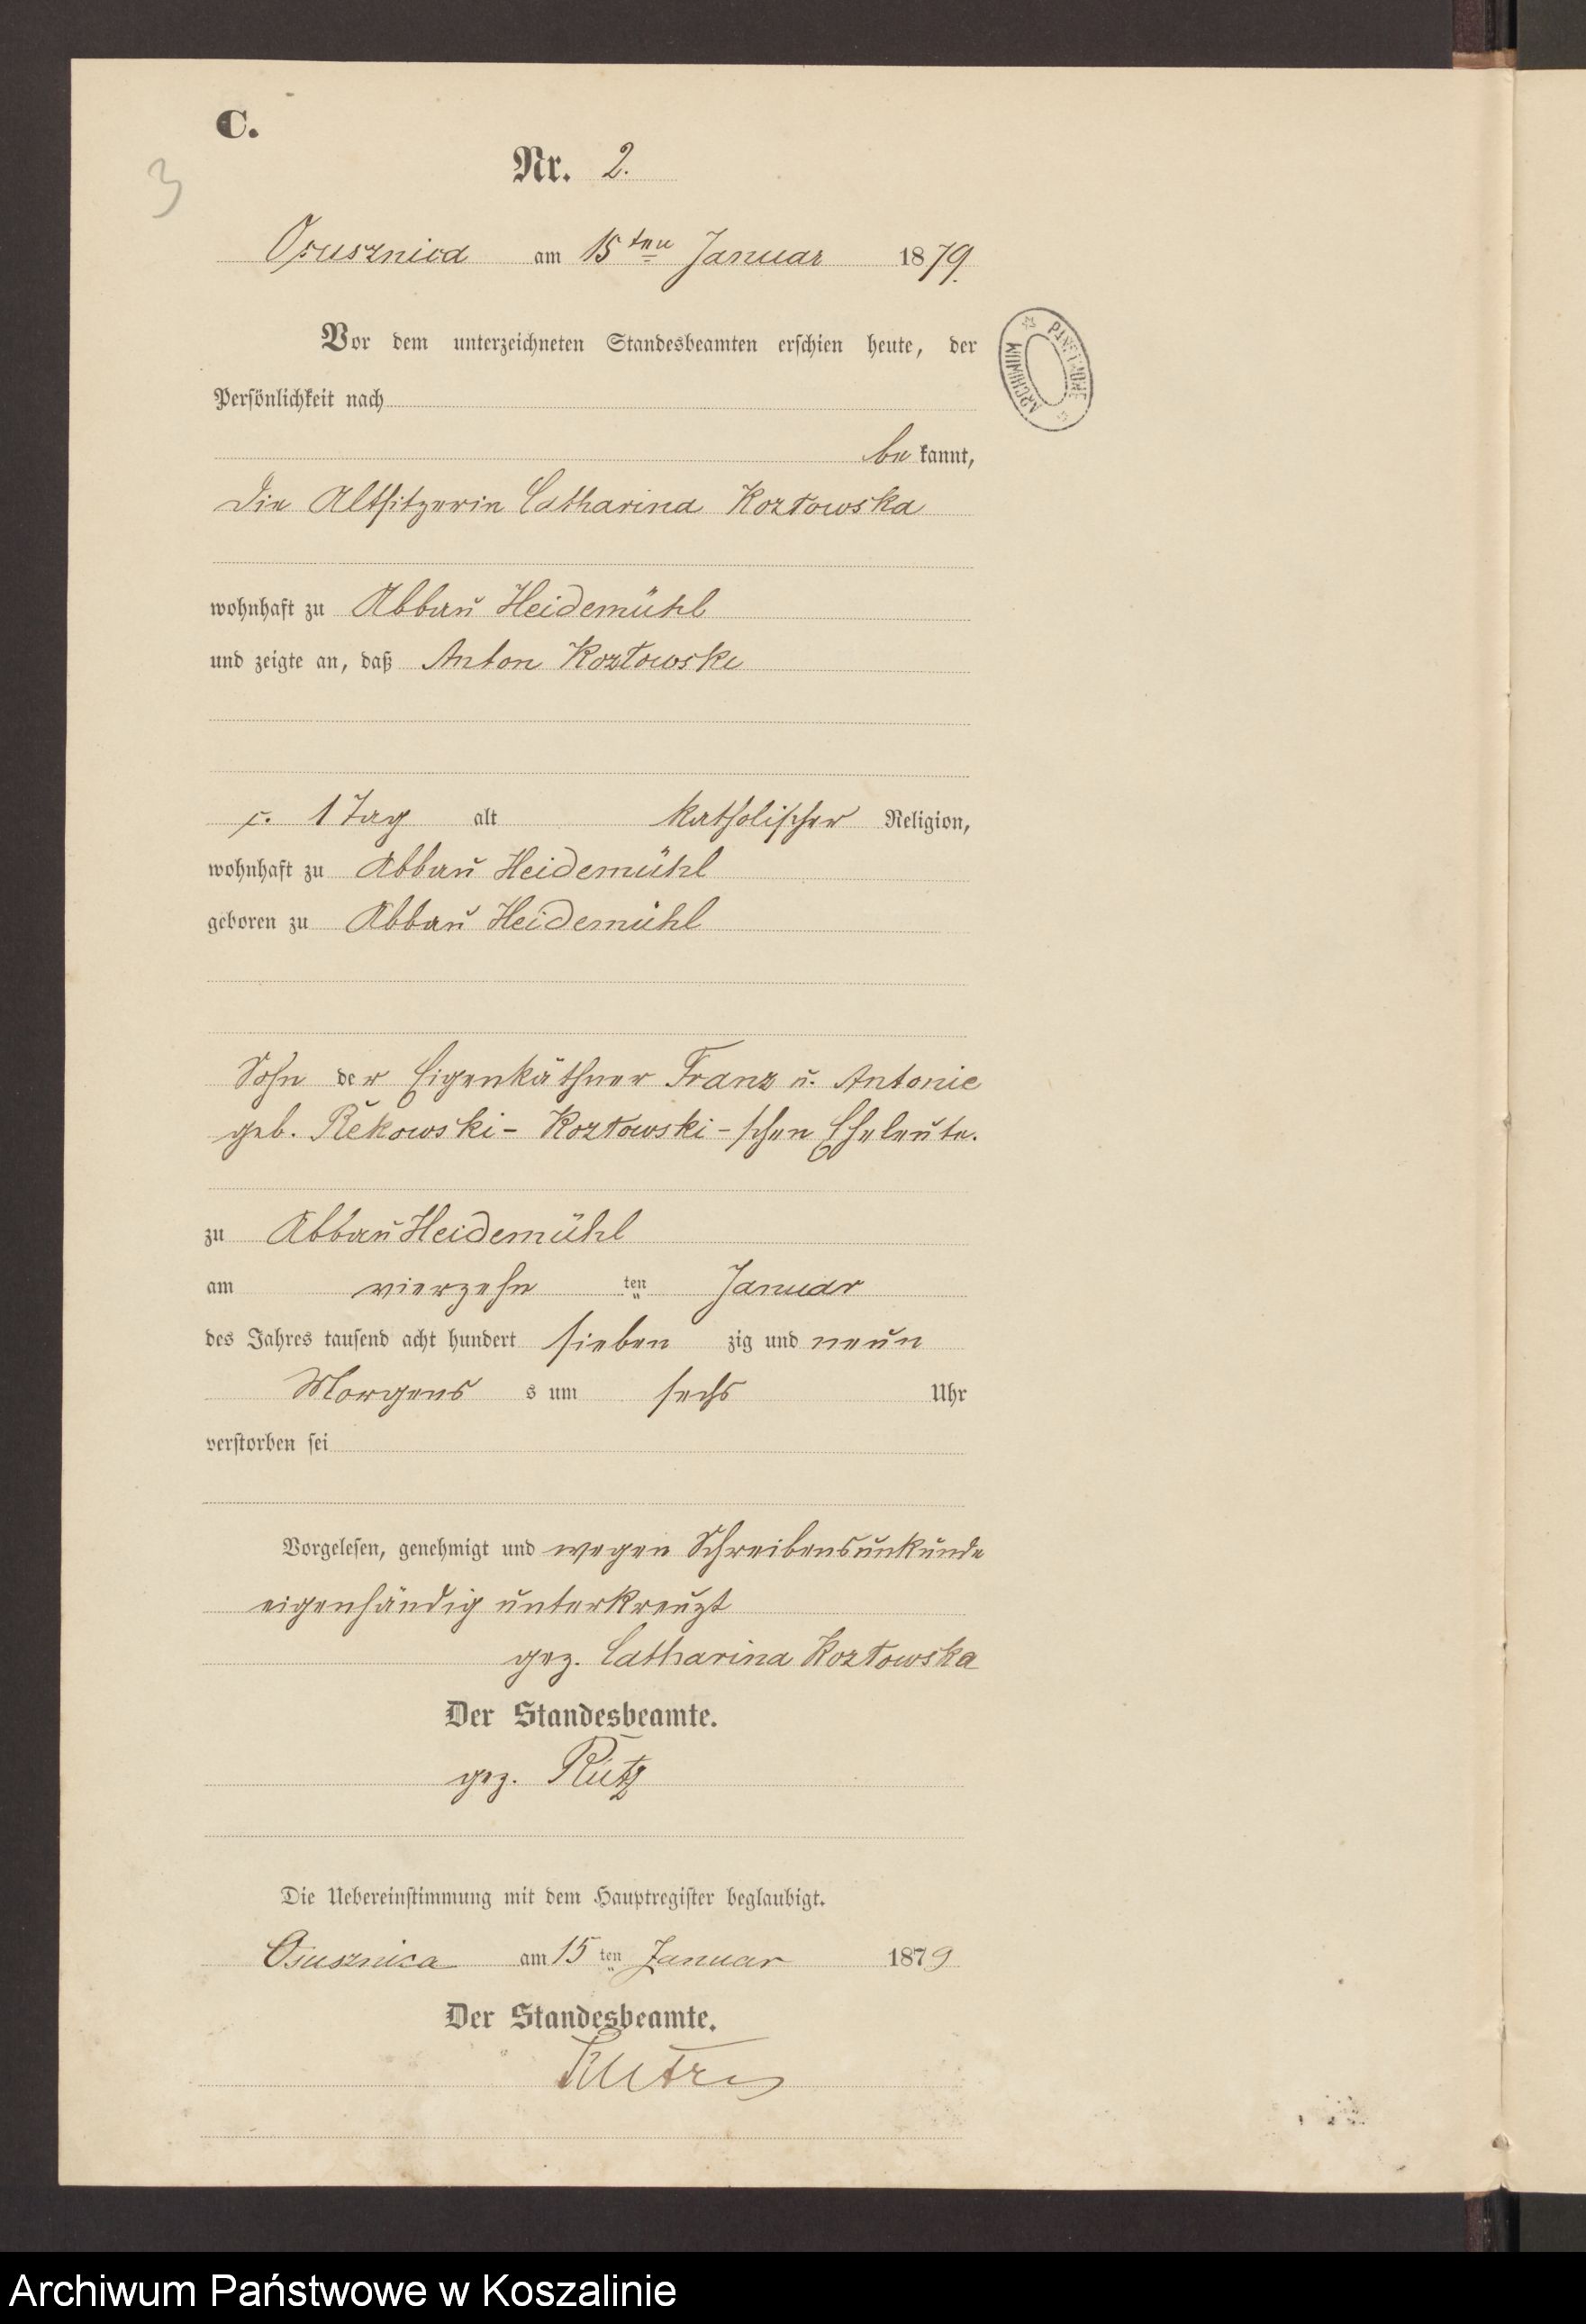 C.
3
Nr. 2.
Osusznica am 15ten Januar 1879.
Vor dem unterzeichneten Standesbeamten erschien heute, der
Persönlichkeit nach
be kannt,
die Altsitzerin Catharina Kozłowska
wohnhaft zu Abbau Heidemühl
und zeigte an, daß Anton Kozłowski
c. 1 Tag alt katholischer Religion,
wohnhaft zu Abbau Heidemühl
geboren zu Abbau Heidemühl
Sohn der Eigenkäthner Franz u. Antonie
geb. Rekowski - Kozłowski - schen Eheleute.
zu Abbau Heidemühl
am vierzehn ten Januar
des Jahres tausend acht hundert sieben zig und neun
Morgens s um sechs Uhr
verstorben sei
Vorgelesen, genehmigt und wegen Schreibensunkunde
eigenhändig unterkreuzt
gez. Catharina Kozłowska
Der Standesbeamte.
gez. Rütz
Die Uebereinstimmung mit dem Hauptregister beglaubigt.
Osusznica am 15 ten Januar 1879
Der Standesbeamte.
ARCHIWUM PAŃSTWOWE
Archiwum Państwowe w Koszalinie